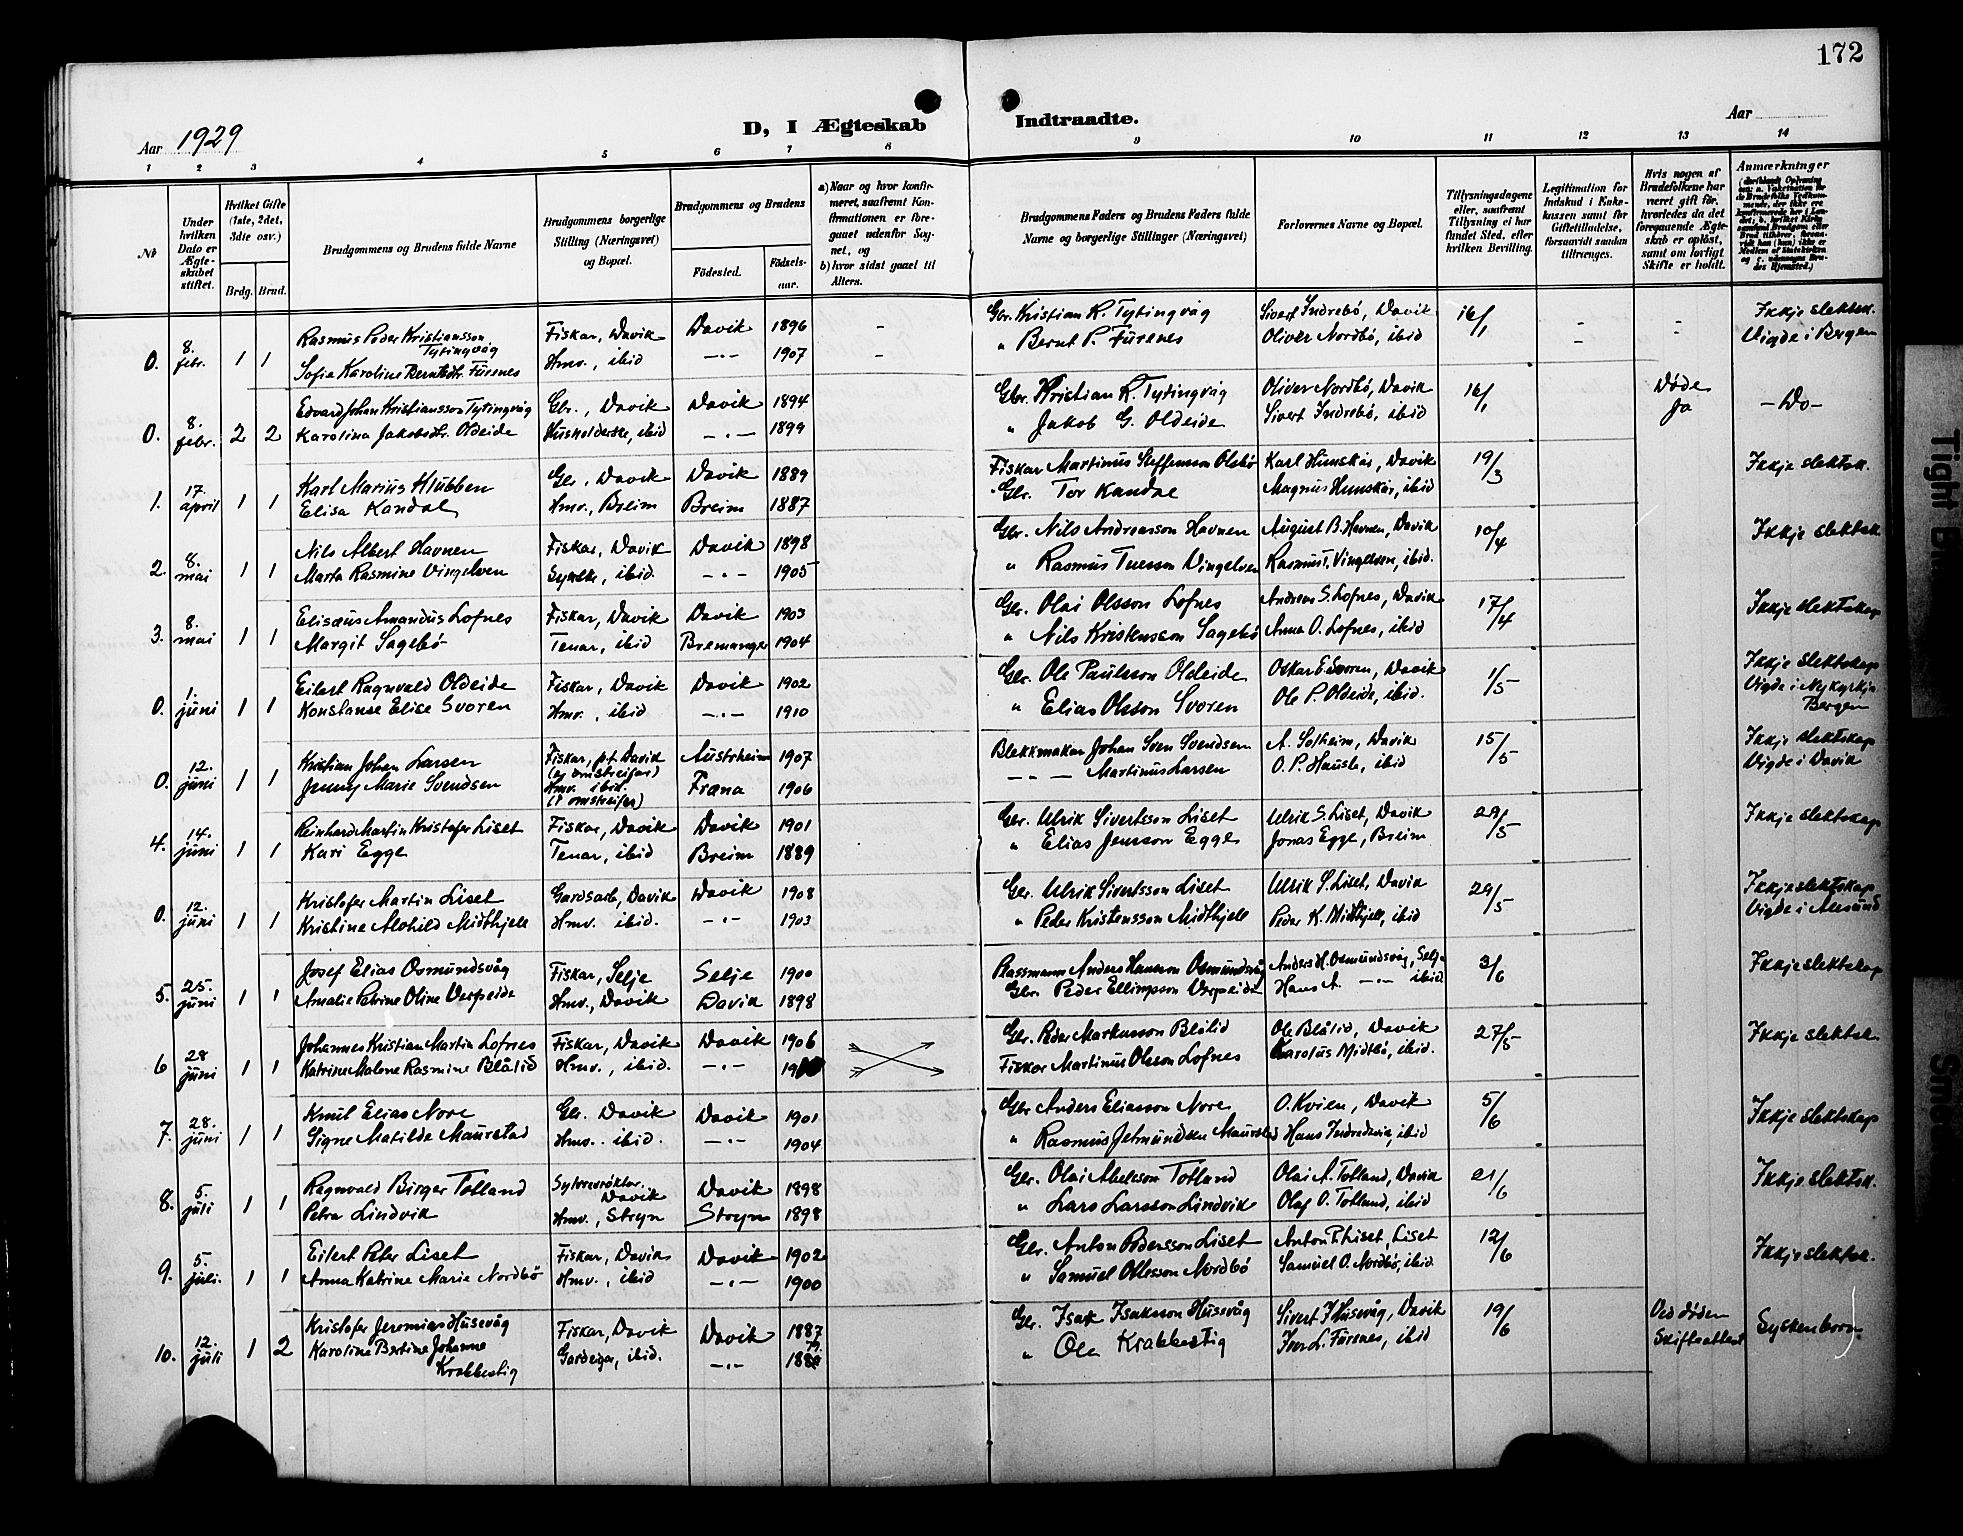 172
Aar 1929
D, I Ægteskab Indtraadte.
Aar
1 2 3 4 5 6 7 8 9 10 11 12 13 14
No
Under hvilken Dato er Ægteskabet stiftet.
Hvilket Gifte (1ste, 2det, 3die osv.)
Brdg. Brud.
Brudgommens og Brudens fulde Navne
Brudgommens borgerlige Stilling (Næringsvei) og Bopæl.
Brudgommens og Brudens
Födested. Födselsaar.
a) Naar og hvor konfirmeret, saafremt Konfirmationen er foregaaet udenfor Sognet, og
b) hvor sidst gaaet til Alters.
Brudgommens Faders og Brudens Faders fulde Navne og borgerlige Stillinger (Næringsvei)
Forlovernes Navne og Bopæl.
Tillysningsdagene eller, saafremt Tillysning ei har fundet Sted, efter hvilken Bevilling.
Legitimation for Indskud i Enkekassen samt for Giftetilladelse, forsaavidt saadan tiltrænges.
Hvis nogen af Brudefolkene har været gift för, hvorledes da det foregaaende Ægteskab er oplöst, samt om lovligt Skifte er holdt.
Anmærkninger
0. 8. febr. 1 1 Rasmus Peder Kristiansson Tytingvåg Fiskar, Davik Davik 1896 - Gbr. Kristian R. Tytingvåg Sivert Indrebø, Davik 16/1 - - Ikkje slektsk.
Sofie Karoline Berntsdtr. Furenes Hmv., ibid -"- 1907 - " Bernt P. Furenes Oliver Nordbø, ibid - - Vigde i Bergen
0. 8. febr. 2 2 Edvard Johan Kristiansson Tytingvåg Gbr., Davik Davik 1894 Gbr. Kristian R. Tytingvåg Oliver Nordbø, Davik 16/1 Døde
Karolina Jakobsdtr. Oldeide Husholderske, ibid -"- 1899 " Jakob G. Oldeide Sivert Indrebø, ibid Ja -Do-
1. 17. april 1 1 Karl Marius Klubben Gbr, Davik Davik 1889 Fiskar Martinus Steffensson Olsbø Karl Humskår, Davik 19/3 Ikkje slektsk.
Elisa Kandal Hmv., Breim Breim 1887 Gbr. Tor Kandal Magnus Humskår, ibid
2. 8. mai 1 1 Nils Albert Havnen Fiskar, Davik Davik 1898 Gbr. Nils Andreasson Havnen August B. Havnen, Davik 10/4 Ikkje slektsk
Marta Rasmine Vingelven Syerske, ibid. -"- 1905 " Rasmus Tuesson Vingelven Rasmus T. Vingelven, ibid.
3. 8. mai 1 1 Elisæus Amandus Lofnes Fiskar, Davik Davik 1903 Gbr. Olai Olsson Lofnes Andreas S. Lofnes, Davik 17/4 Ikkje slektskap
Margit Sagebø Tenar, ibid Bremanger 1904 " Nils Kristensson Sagebø Anna O. Lofnes, ibid
0. 1. juni 1 1 Eilert Ragnvald Oldeide Fiskar, Davik Davik 1902 Gbr. Ole Paulsson Oldeide Oskar E. Svoren, Davik 1/5 Ikkje slektskap
Konstanse Elise Svoren Hmv., ibid -"- 1910 " Elias Olsson Svoren Ole P. Oldeide, ibid. Vigde i Nykyrkja Bergen
0. 12. juni 1 1 Kristian Johan Larsen Fiskar, p.t. Davik (ex omstreifar) Austrheim 1907 Blekkmakar Johan Sven Svendsen A. Solheim, Davik 15/5 Ikkje slektskap
Jenny Marie Svendsen Hmv. ibid. (omstreifer) Fræna 1906 -"- Martinus Larsen O. P. Hausle, ibid Vigde i Davik
4. 14. juni 1 1 Reinhard Martin Kristofer Liset Fiskar, Davik Davik 1901 Gbr. Ulrik Sivertsson Liset Ulrik S. Liset, Davik 29/5 Ikkje slektskap
Kari Egge Tenar, ibid Breim 1889 " Elias Jensson Egge Jonas Egge, Breim
0. 12. juni 1 1 Kristofer Martin Liset Gardsarb, Davik Davik 1908 Gbr. Ulrik Sivertsson Liset Ulrik S. Liset, Davik 29/5 Ikkje slektskap
Kristine Alvhild Midthjell Hmv. ibid. -"- 1903 " Peder Kristensson Midthjell Peder K. Midthjell, ibid Vigde i Ålesund
5. 25. juni 1 1 Josef Elias Osmundsvåg Fiskar, Selje Selje 1900 Plassmann Anders Hansson Osmundsvåg Anders H. Osmundsvåg, Selje 3/6 Ikkje slektskap
Amalie Petrine Oline Verpeide Hmv, Davik Davik 1898 Gbr. Peder Ellingsson Verpeide Hans A. -"- ibid
6 28 juni 1 1 Johannes Kristian Martin Lofnes Fiskar, Davik Davik 1906 Gbr. Peder Markusson Blålid Ole Blålid, Davik 27/5 Ikkje slektsk
Katrine Malene Rasmine Blålid Hmv., ibid. -"- Fiskar Martinus Olsson Lofnes Karolus Midtbø, ibid.
7. 28. juni 1 1 Knut Elias Nore Gbr. Davik Davik 1901 Gbr Anders Eliasson Nore O. Kvien, Davik 5/6 Ikkje slektskap
Signe Matilde Maurstad Hmv. ibid. -"- 1904 " Rasmus Jetmundsen Maurstad Hans Indredavik, ibid
8. 5. juli 1 1 Ragnvald Birger Totland Sylvrevrøktar. Davik Davik 1898 Gbr. Olai Abelsson Totland Olai A. Totland, Davik 21/6 Ikkje slektsk.
Petra Lindvik Hmv., Stryn Stryn 1898 " Lars Larsson Lindvik Olaf O. Totland, ibid
9. 5. juli. 1 1 Eilert Peter Liset Fiskar, Davik Davik 1902 Gbr. Anton Pedersson Liset Anton P. Liset, Liset 12/6 Ikkje slektsk.
Anna Katrine Marie Nordbø Hmv., ibid -"- 1900 " Samuel Ottesson Nordbø Samuel O. Nordbø, ibid.
10. 12. juli 1 2 Kristofer Jeremias Husevåg Fiskar, Davik Davik 1887 Gbr. Isak Isaksson Husevåg Sivert I Husevåg, Davik 19/6 Ved døden Syskenborn
Karoline Bertine Johanne Krabbestig Gardeigar, ibid. -"- " Ole Krabbestig Iver L. Furenes, ibid Skifteattest
Tight